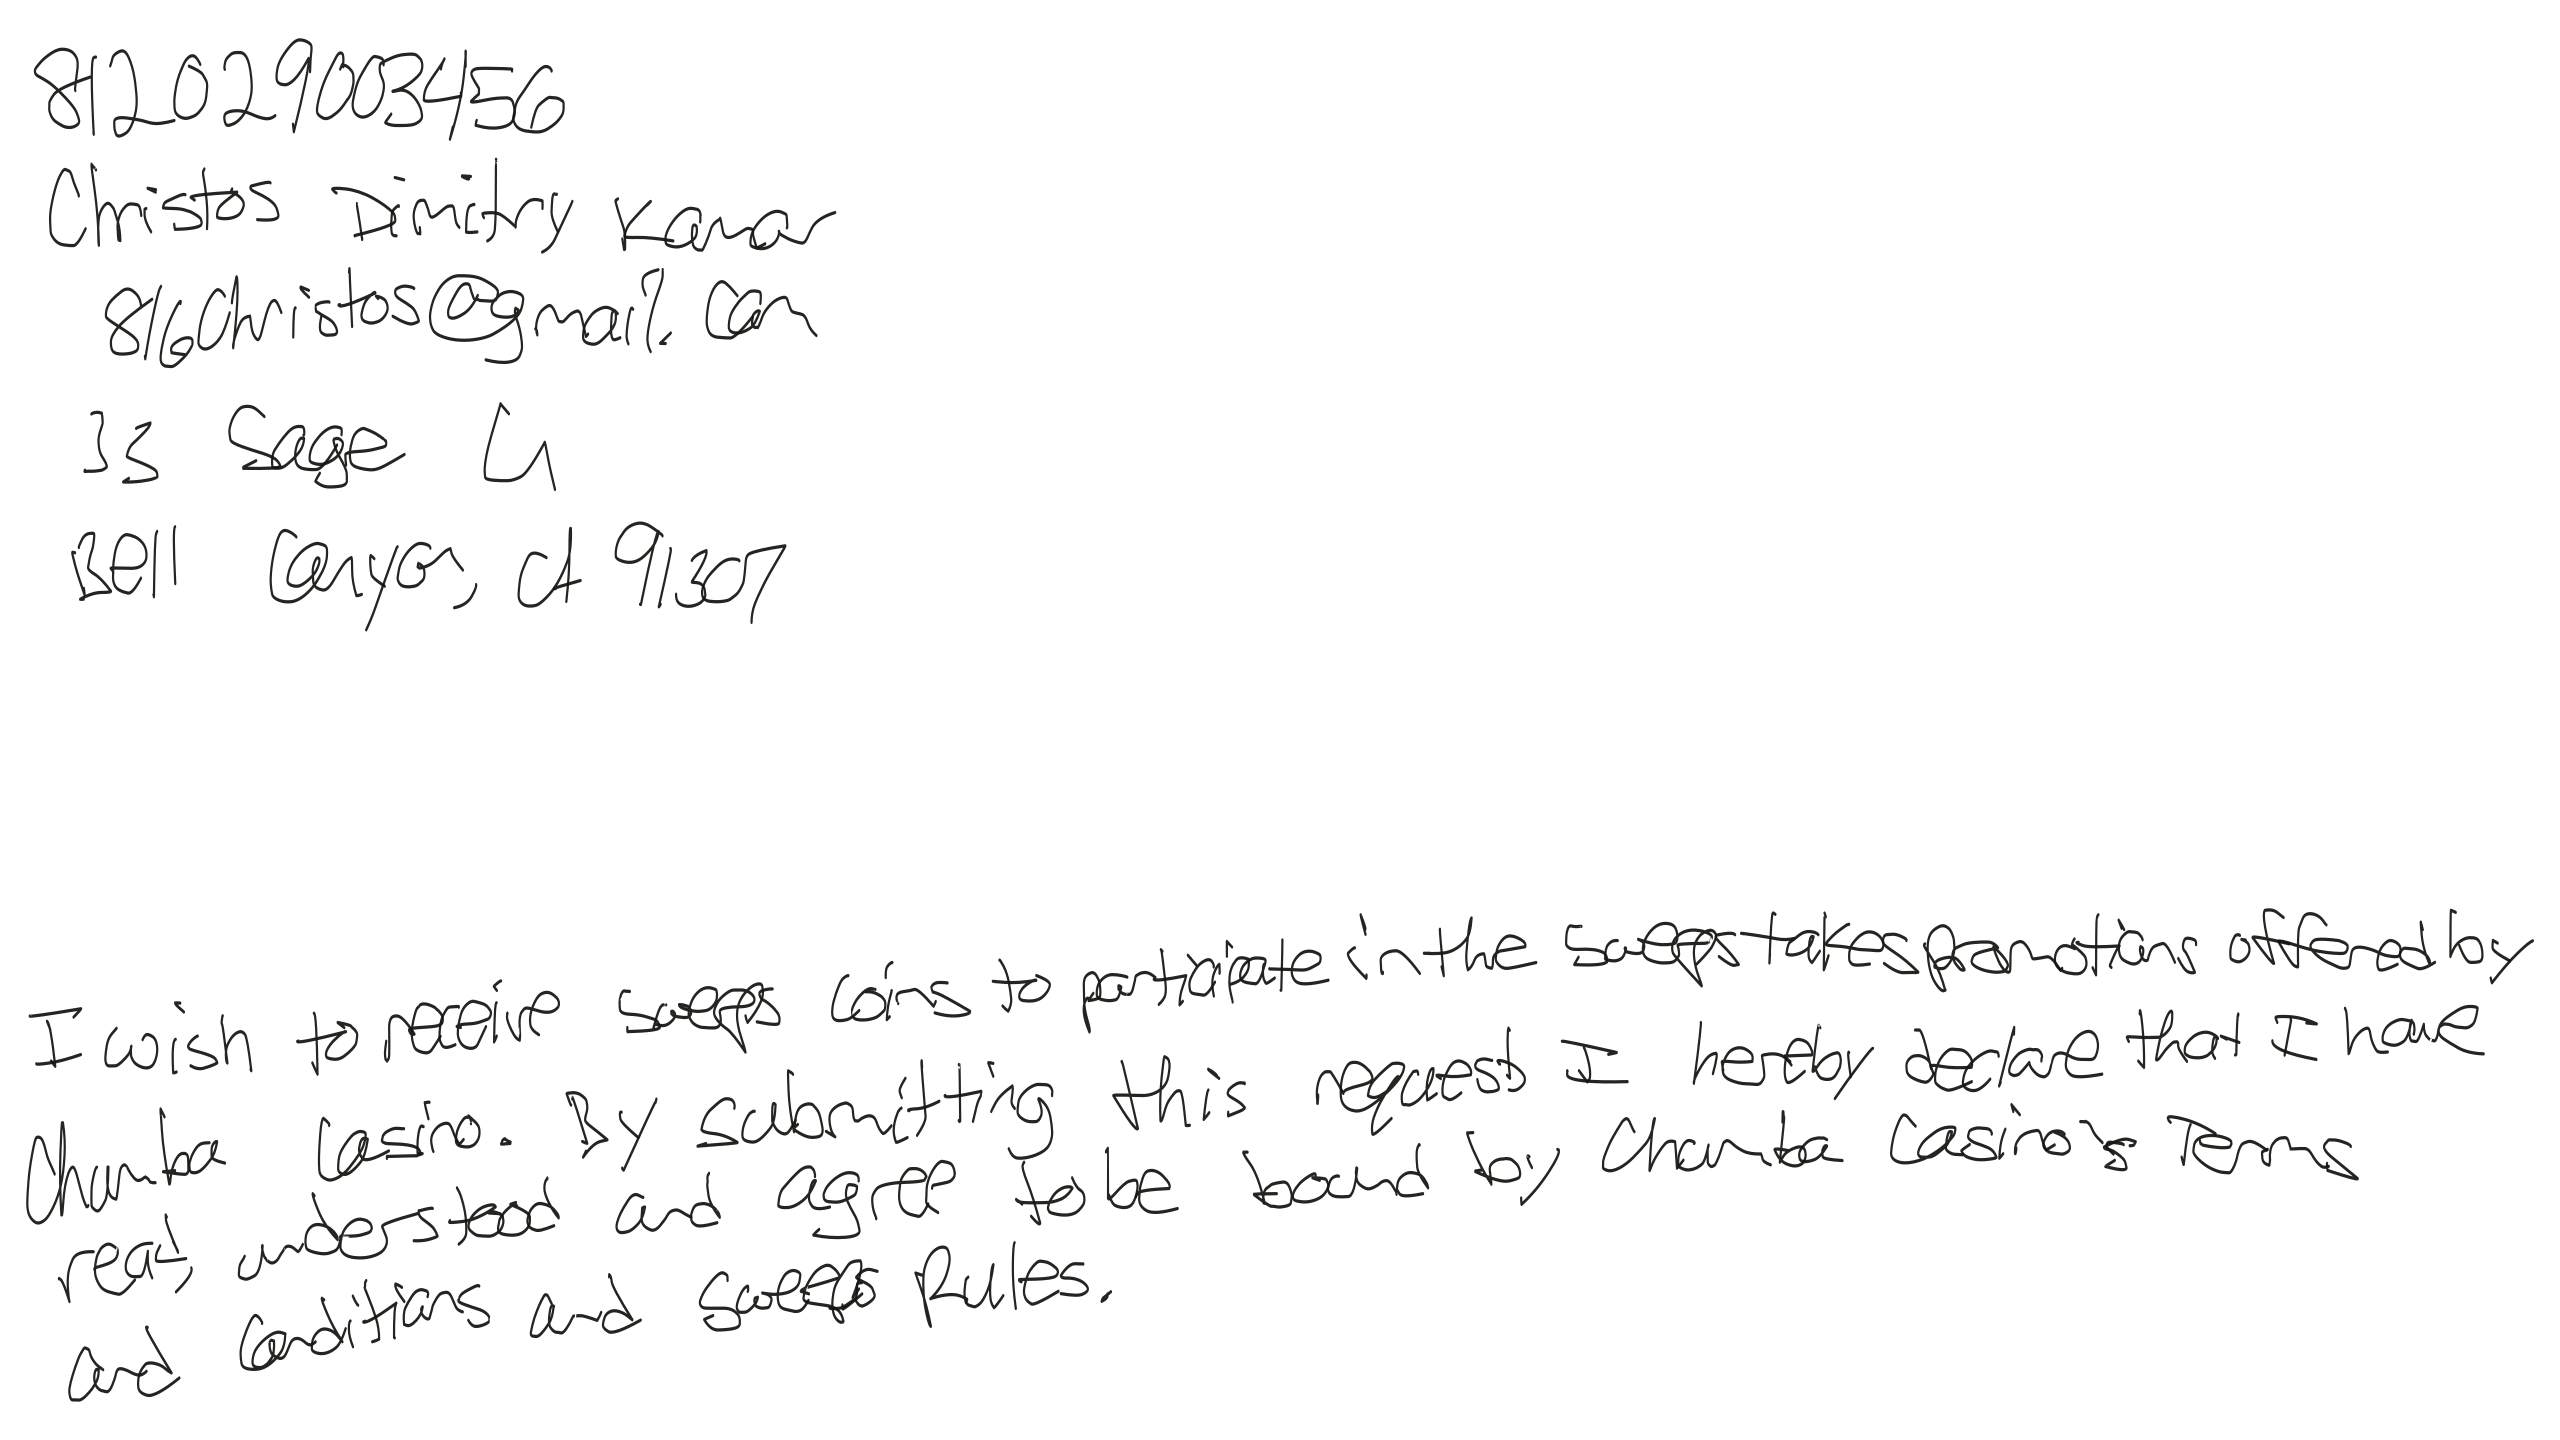 812029003456
Christos Dimitry Kamar
816Christos@gmail.com
33 Sage Ln
Bell Canyon, CA 91307
I wish to receive sweeps coins to participate in the sweepstakes promotions offered by
Chumba Casino. By submitting this request I hereby declare that I have
read, understood and agree to be bound by Chumba Casino's Terms
and Conditions and sweeps Rules.